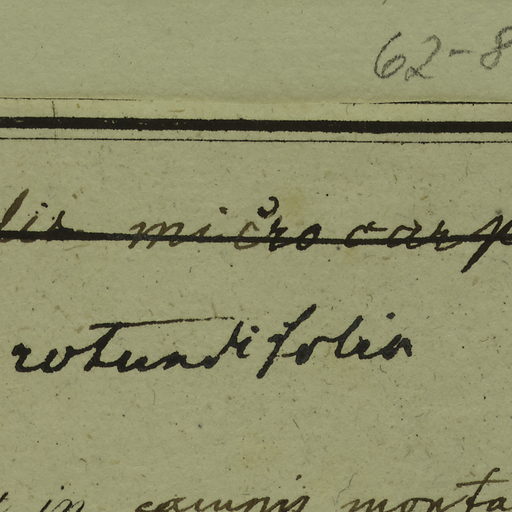 62-8
lis microcarp
rotundifolia
in campis monta